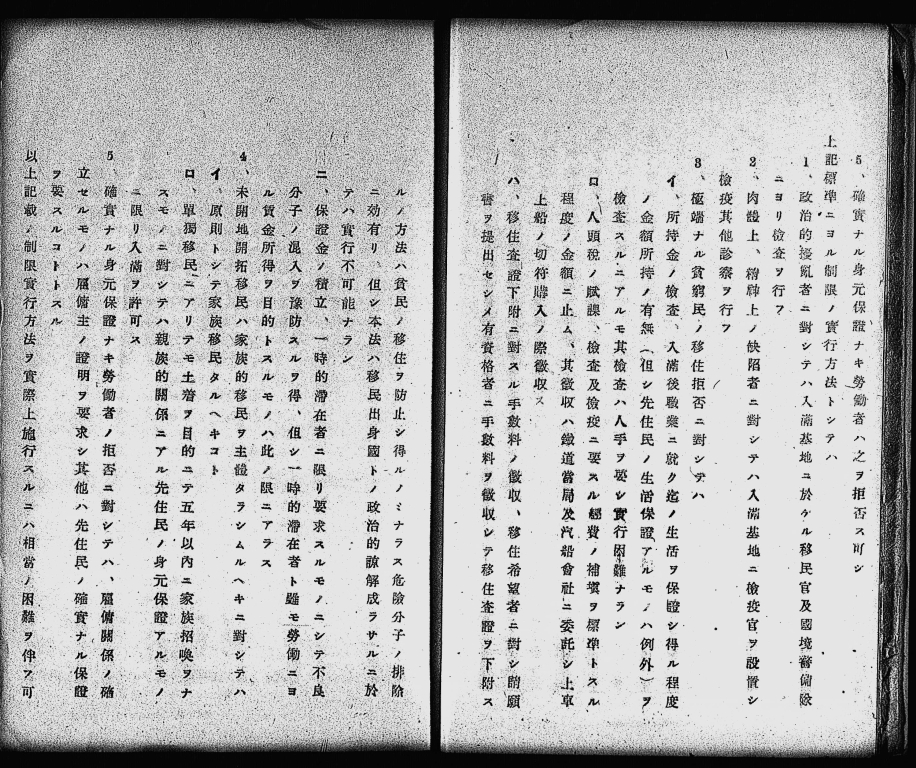 5、確實ナル身元保證ナキ勞働者ハ之ヲ拒否ス可シ
上記標準ニヨル制限ノ實行方法トシテハ
1、政治的擾亂者ニ對シテハ入滿基地ニ於ケル移民官及國境警備隊
ニヨリ檢査ヲ行フ
2、肉體上、精神上ノ缺陷者ニ對シテハ入滿基地ニ檢疫官ヲ設置シ
檢疫其他診察ヲ行フ
3、極端ナル貧窮民ノ移住拒否ニ對シテハ
イ、所持金ノ檢査、入滿後職業ニ就ク迄ノ生活ヲ保證シ得ル程度
ノ金額所持ノ有無（但シ先住民ノ生活保證アルモノハ例外）ヲ
檢査スルニアルモ其檢査ハ人手ヲ要シ實行困難ナラン
ロ、人頭稅ノ賦課、檢査及檢疫ニ要スル經費ノ補塡ヲ標準トスル
程度ノ金額ニ止ム、其徵收ハ鐵道當局及汽船會社ニ委託シ上車
上船ノ切符購入ノ際徵收ス
ハ、移住査證下附ニ對スル手數料ノ徵收、移住希望者ニ對シ請願
書ヲ提出セシメ有資格者ニ手數料ヲ徵收シテ移住査證ヲ下附ス
ルノ方法ハ貧民ノ移住ヲ防止シ得ルノミナラス危險分子ノ排除
ニ効有リ、但シ本法ハ移民出身國トノ政治的諒解成ラサルニ於
テハ實行不可能ナラン
ニ、保證金ノ積立、一時的滯在者ニ限リ要求スルモノニシテ不良
分子ノ混入ヲ豫防スルヲ得、但シ一時的滯在者ト雖モ勞働ニヨ
ル賃金所得ヲ目的トスルモノハ此ノ限ニアラス
4、未開地開拓移民ハ家族的移民ヲ主體タラシムルヘキニ對シテハ
イ、原則トシテ家族移民タルヘキコト
ロ、單獨移民ニアリテモ土着ヲ目的ニテ五年以內ニ家族招喚ヲナ
スモノニ對シテハ親族的關係ニアル先住民ノ身元保證アルモノ
ニ限リ入滿ヲ許可ス
5、確實ナル身元保證ナキ勞働者ノ拒否ニ對シテハ、雇傭關係ノ確
立セルモノハ雇傭主ノ證明ヲ要求シ其他ハ先住民ノ確實ナル保證
ヲ要スルコトトスル
以上記載ノ制限實行方法ヲ實際上施行スルニハ相當ノ困難ヲ伴フ可